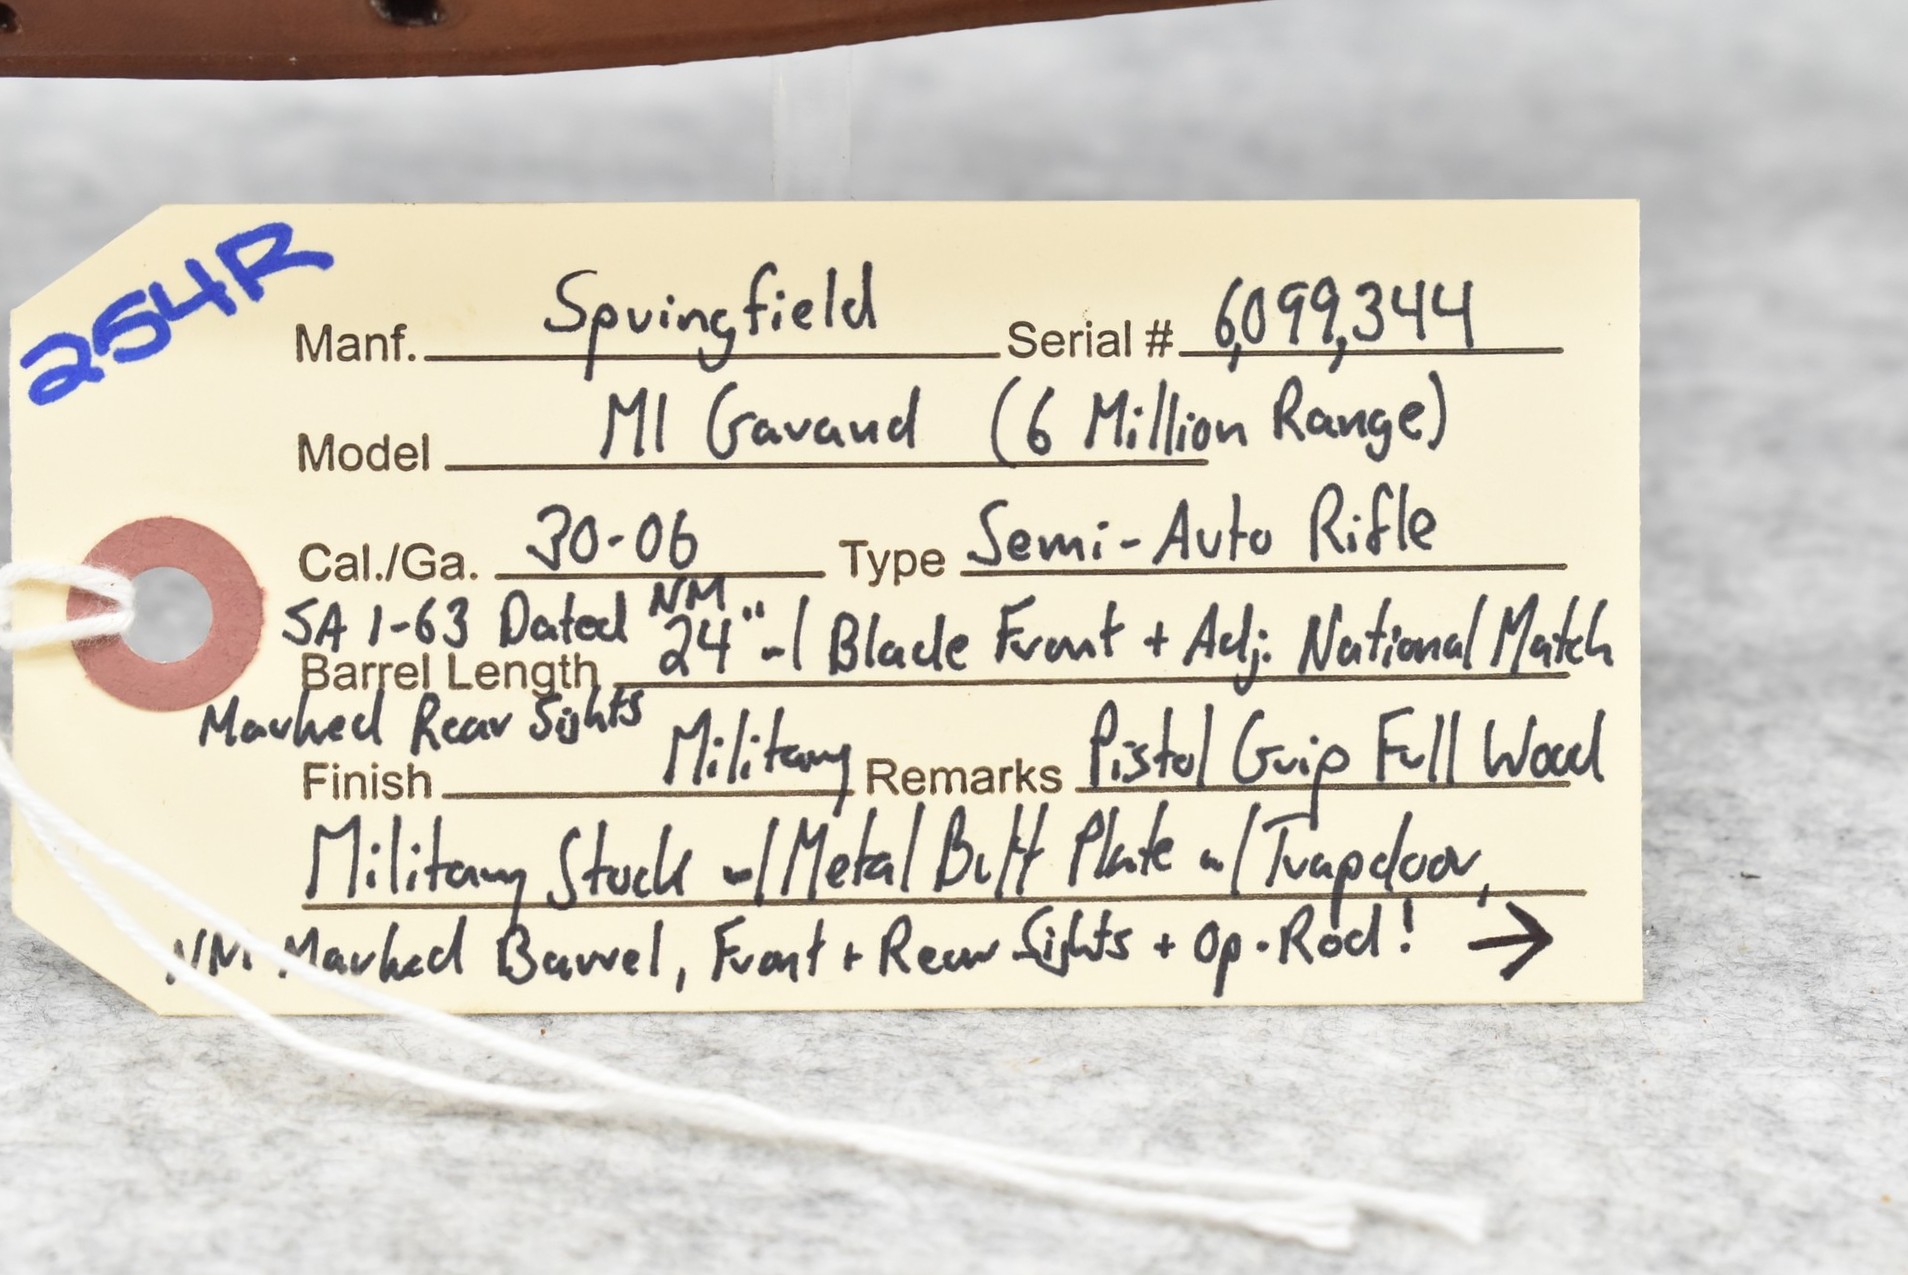 254R
Manf. Springfield Serial # 6,099,344
Model M1 Garand (6 Million Range)
Cal./Ga. 30-06 Type Semi-Auto Rifle
SA 1-63 Dated NM
Barrel Length 24" w/ Blade Front + Adj. National Match
Marked Rear Sights
Finish Military Remarks Pistol Grip Full Wood
Military Stock w/ Metal Butt Plate w/ Trapdoor,
NM Marked Barrel, Front + Rear Sights + Op-Rod! →